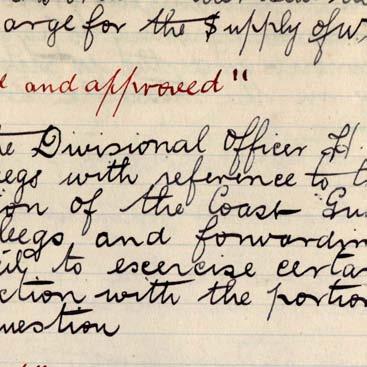 arge for the Supply of W
and approved"
the Divisional Officer H.
eegs with reference to t
ion of the Coast Gu
leegs and forwardin
cil to excercise certa
ction with the portio
uestion